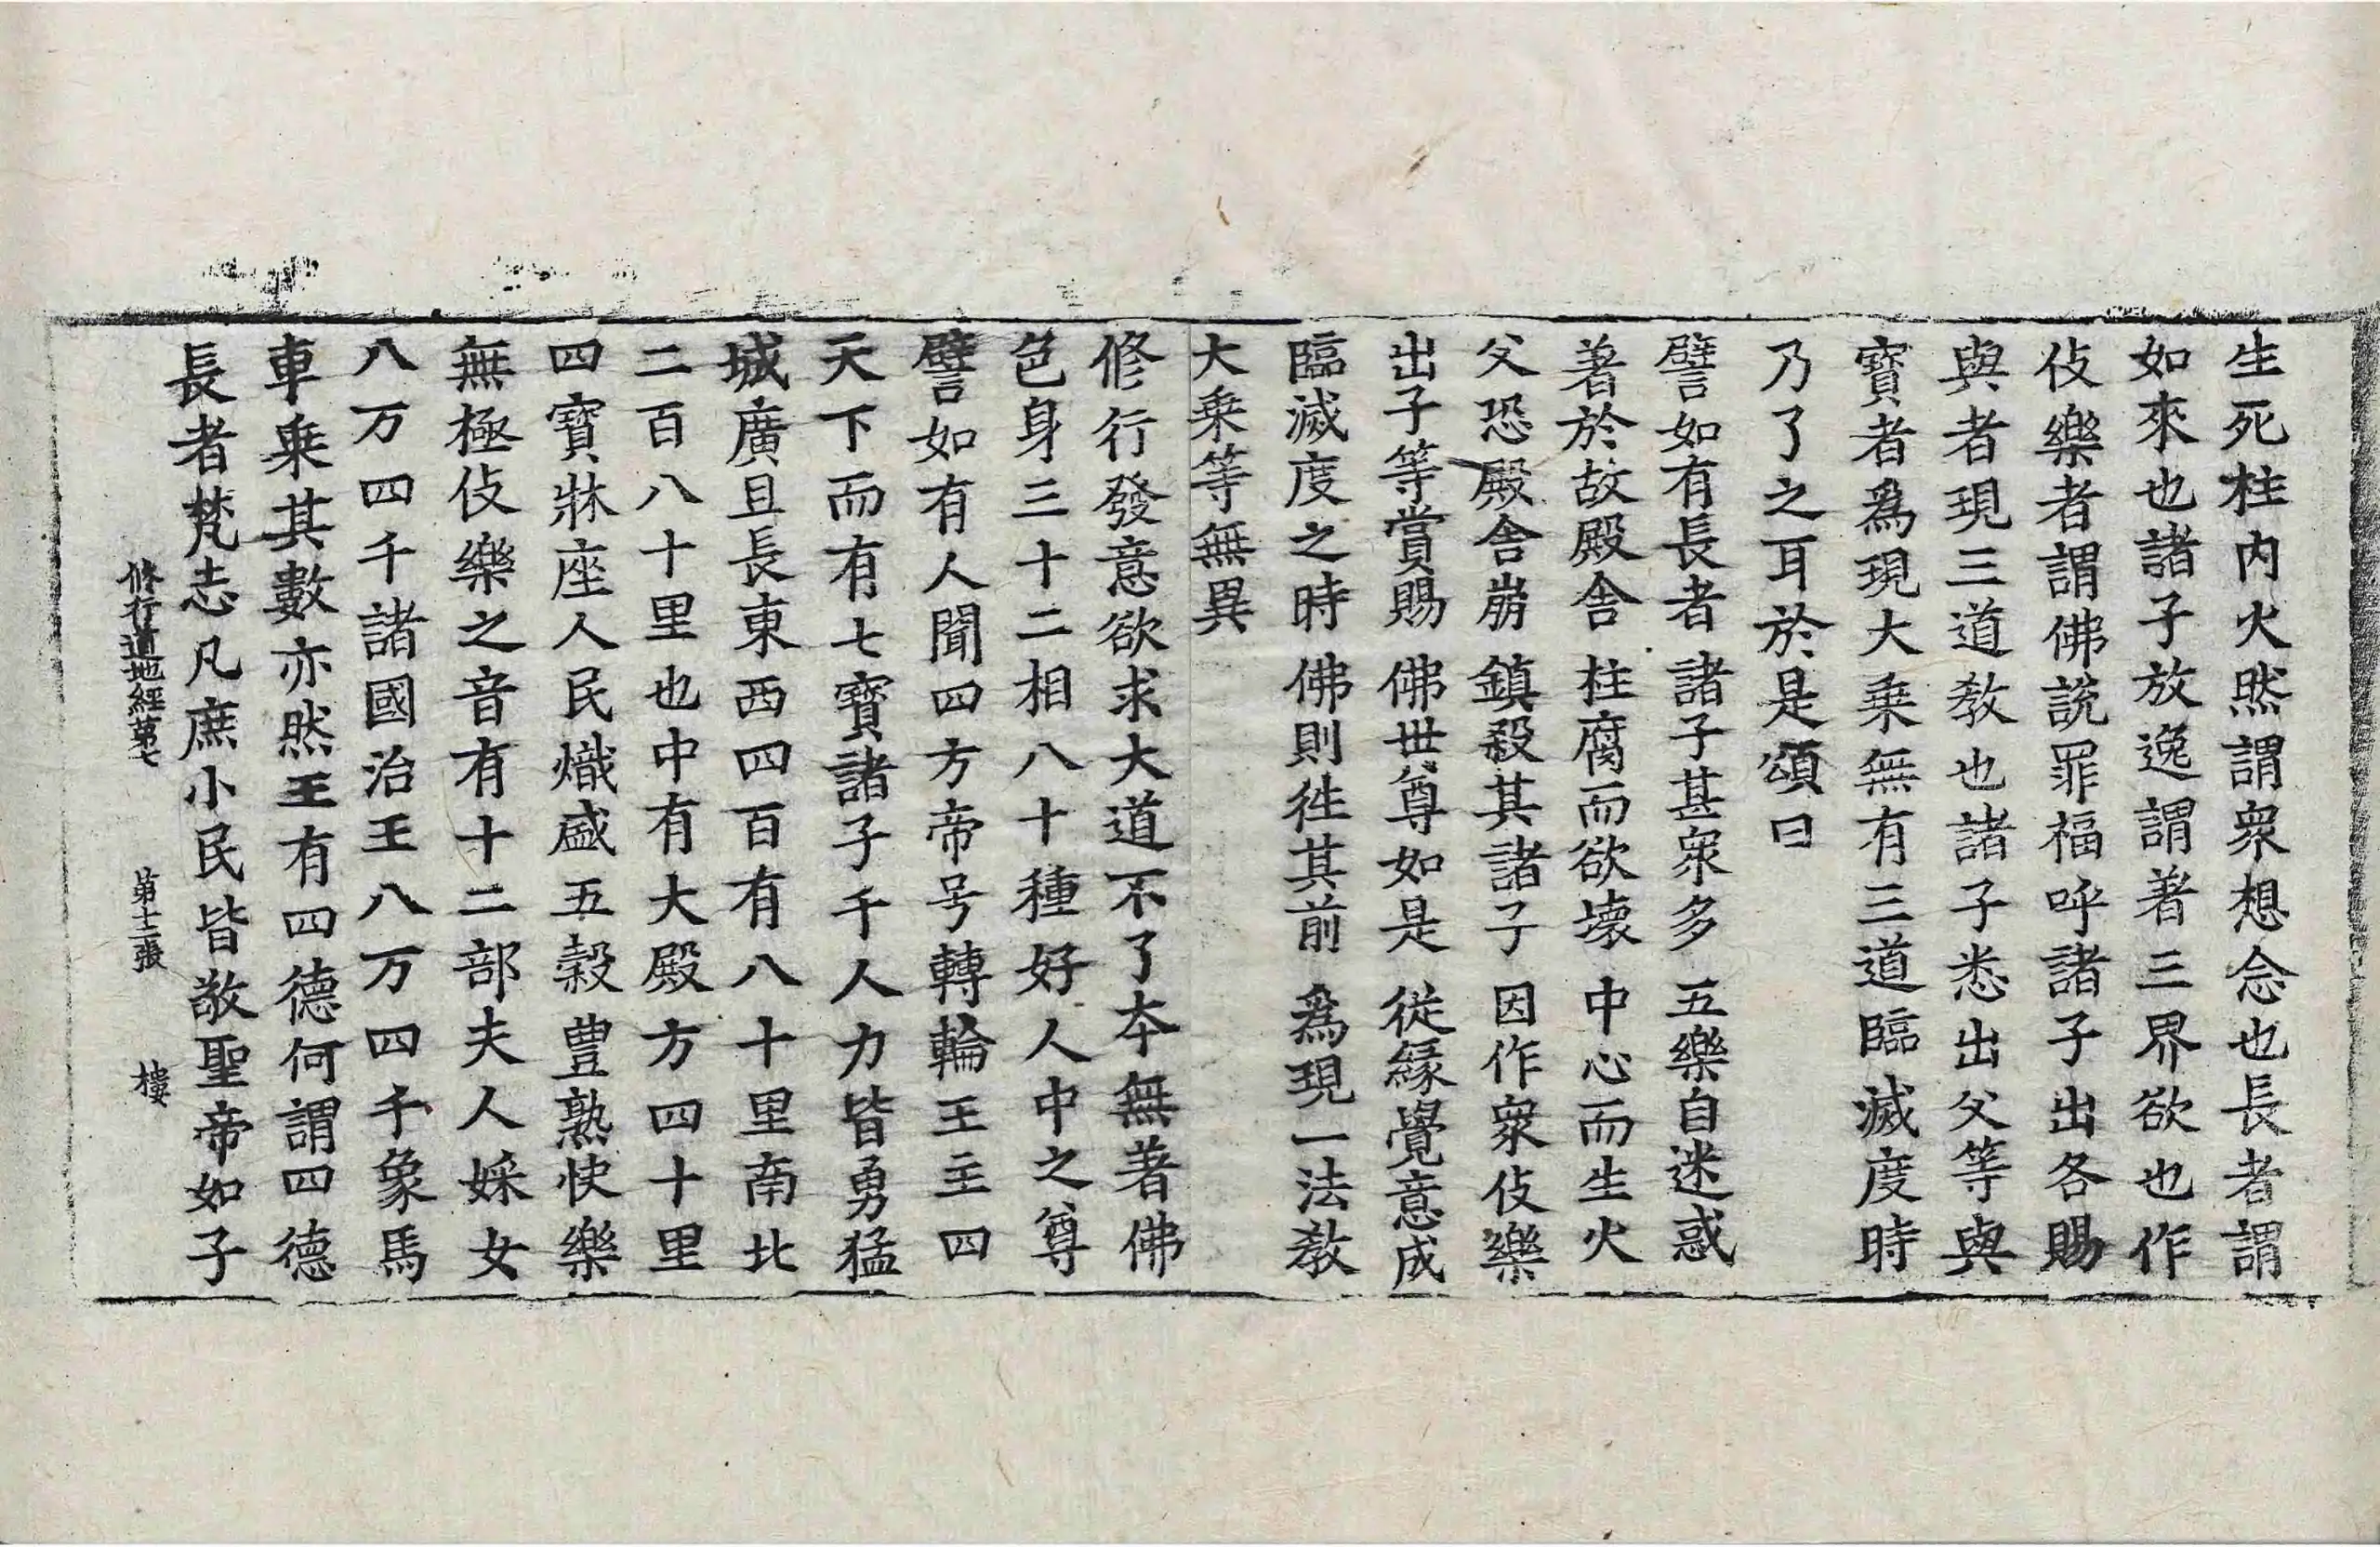 生死柱内火然謂衆想念也長者謂
如來也諸子放逸謂著三界欲也作
伎樂者謂佛説罪福呼諸子出各賜
與者現三道教也諸子悉出父等與
寶者爲現大乗無有三道臨滅度時
乃了之耳於是頌曰
譬如有長者 諸子甚衆多 五樂自迷惑
著於故殿舎 柱腐而欲壊 中心而生火
父恐殿舎崩 鎮殺其諸子 因作衆伎樂
出子等賞賜 佛世尊如是 従縁覺意成
臨滅度之時 佛則徃其前 爲現一法教
大乗等無異
修行發意欲求大道不了夲無著佛
色身三十二相八十種好人中之尊
譬如有人聞四方帝号轉輪王主四
天下而有七寶諸子千人力皆勇猛
城廣且長東西四百有八十里南北
二百八十里也中有大殿方四十里
四寶牀座人民熾盛五穀豊熟快樂
無極伎樂之音有十二部夫人婇女
八万四千諸國治王八万四千象馬
車乗其數亦然王有四德何謂四德
長者梵志凡庶小民皆敬聖帝如子
修行道地經苐七 苐十二張 樓